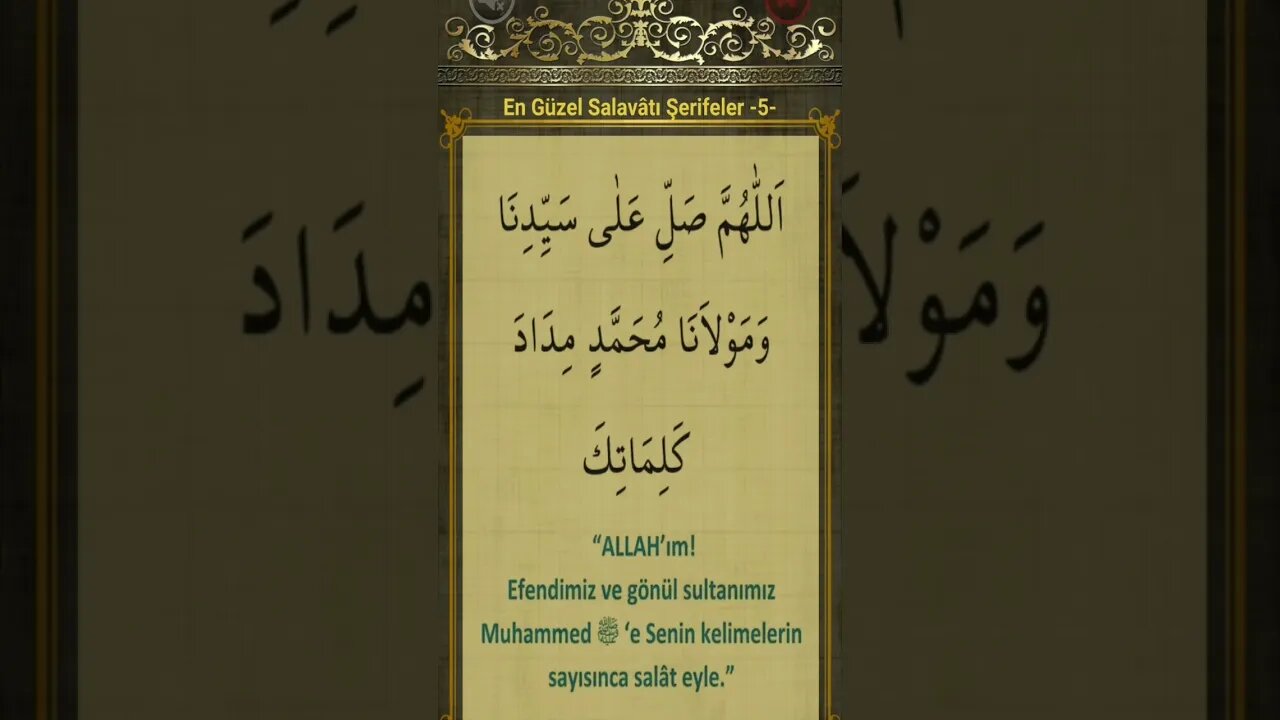 En Güzel Salavâtı Şerifeler -5-
اَللّٰهُمَّ صَلِّ عَلٰى سَيِّدِنَا
وَمَوْلاَنَا مُحَمَّدٍ مِدَادَ
كَلِمَاتِكَ
“ALLAH’ım!
Efendimiz ve gönül sultanımız
Muhammed ﷺ ‘e Senin kelimelerin
sayısınca salât eyle.”